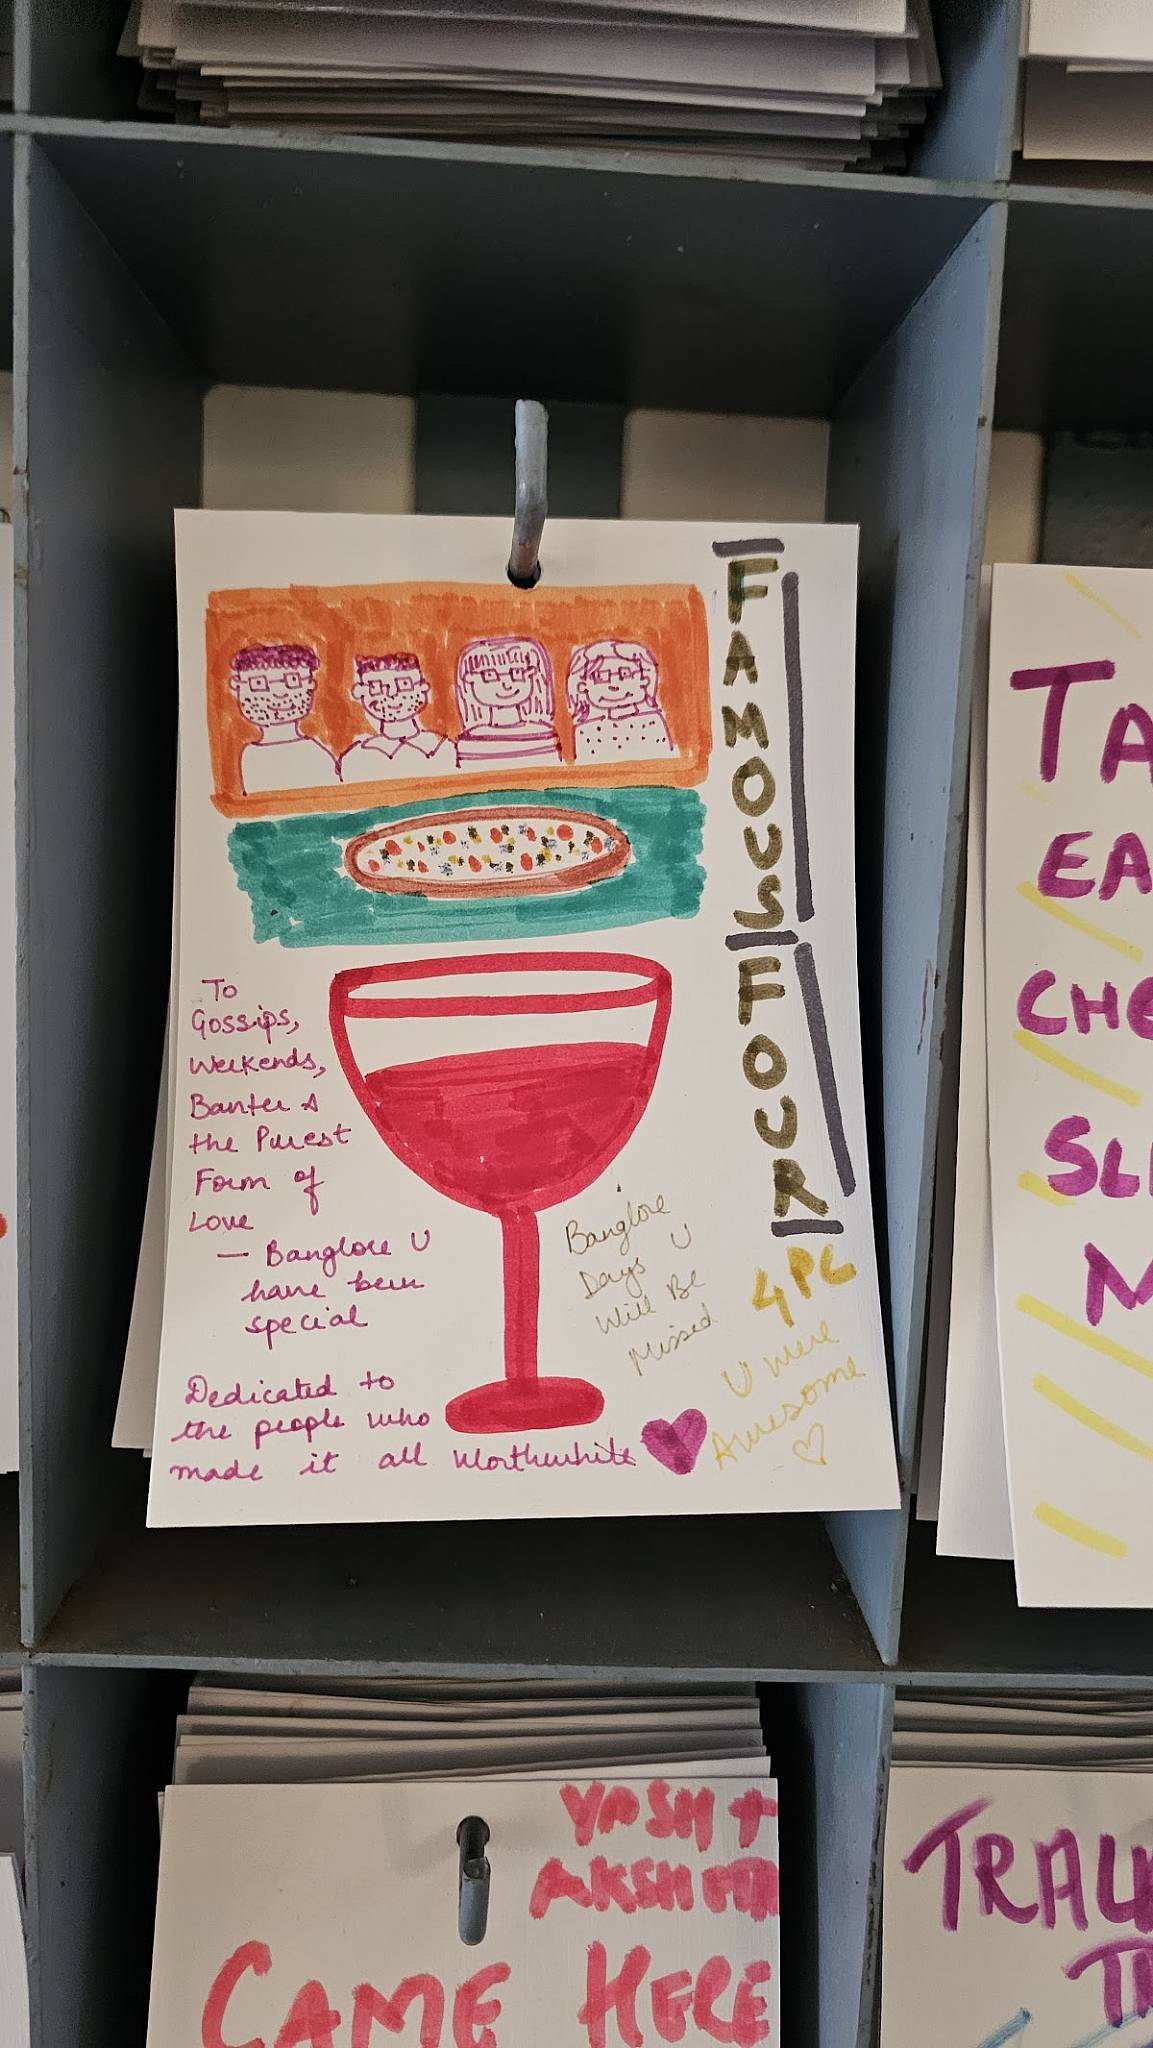 FAMOUS FOUR
To
Gossips,
Weekends,
Banter &
the Purest
Form of
Love
— Banglore U
have been
special
Dedicated to
the people who
made it all Worthwhile
Banglore
Days U
Will Be
Missed
4PC
U were
Awesome
TA
EA
CHO
SL
M
YASH +
CAME HERE
TRAU